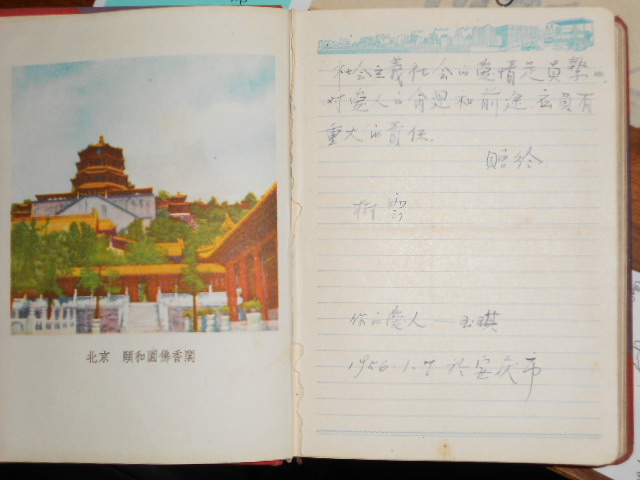 北京 頤和園佛香閣
社会主義社会的爱情是真挚的,
对爱人的前途应負有
重大的責任.
贈给
树
你的爱人 玉琪
1956.1.7 於安庆市